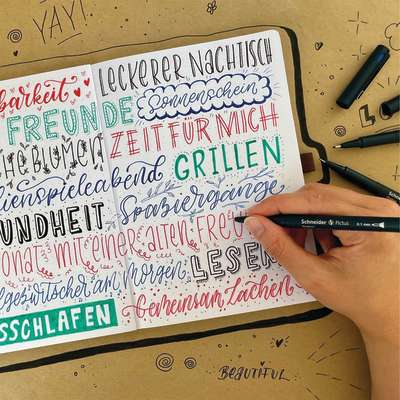 YAY!
barkeit
LECKERER NACHTISCH
FREUNDE
Sonnenschein
HE BLUMEN
ZEIT FÜR MICH
lienspieleabend
GRILLEN
UNDHEIT
Spaziergänge
onat mit einer alten Freun
gezwitscher am Morgen
LESEN
SSCHLAFEN
Gemeinsam Lachen
Schneider Pictus 0.1 mm
BEAUTIFUL